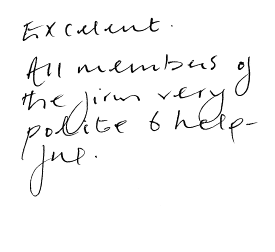 Excellent.
All members of
the firm very
polite & help-
ful.